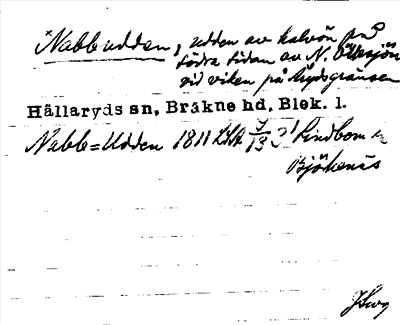 *Nabbudden, udden av halvön på
södra sidan av N. Öllesjön
vid viken på häradsgränsen
Hällaryds sn, Bräkne hd, Blek. l.
Nabb=Udden 1811 LSA Lindbom
Björkenäs